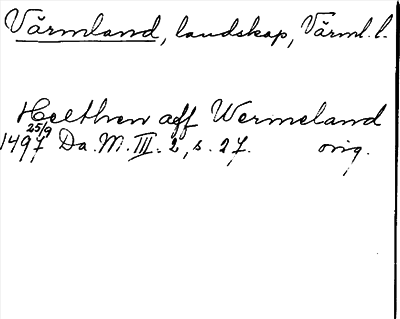 Värmland, landskap, Värml. l.
Heelthen aff Wermeland
25/9
1497 Da. M. III. 2, s. 27. orig.